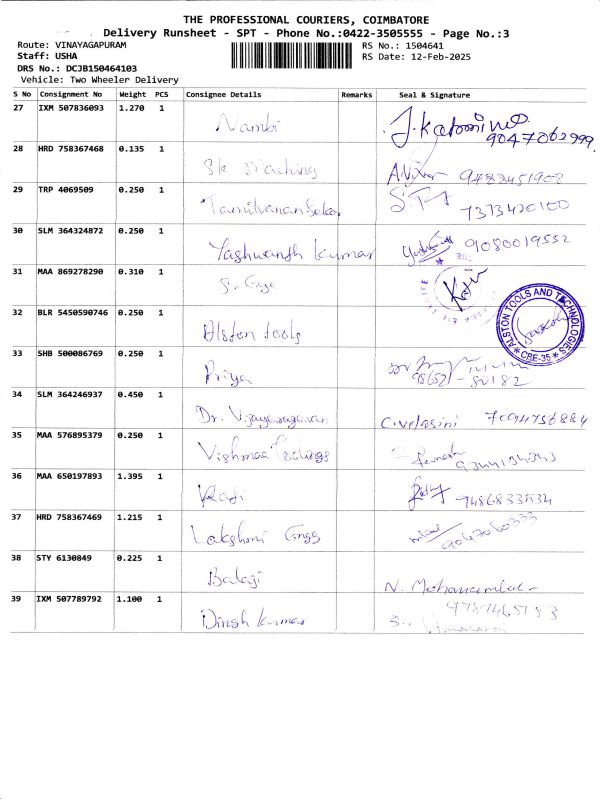 THE PROFESSIONAL COURIERS, COIMBATORE
Delivery Runsheet - SPT - Phone No.:0422-3505555 - Page No.:3
Route: VINAYAGAPURAM RS No.: 1504641
Staff: USHA RS Date: 12-Feb-2025
DRS No.: DCJB150464103
Vehicle: Two Wheeler Delivery
S No Consignment No Weight PCS Consignee Details Remarks Seal & Signature
27 IXM 507836093 1.270 1 Nambi 9047062999
28 HRD 758367468 0.135 1
29 TRP 4069509 0.250 1 7373420100
30 SLM 364324872 0.250 1 Yashwanth Kumar 9080019552
31 MAA 869278290 0.310 1
32 BLR 5450590746 0.250 1 Alston tools
ALSTON TOOLS AND TECHNOLOGIES
CBE-35
33 SHB 500086769 0.250 1 Priya
34 SLM 364246937 0.450 1 Dr. Vijayaragavan
35 MAA 576895379 0.250 1
36 MAA 650197893 1.395 1 Raji 9486833534
37 HRD 758367469 1.215 1 Lakshmi Engg
38 STY 6130849 0.225 1 Balaji
39 IXM 507789792 1.100 1 Dinsh Kumar